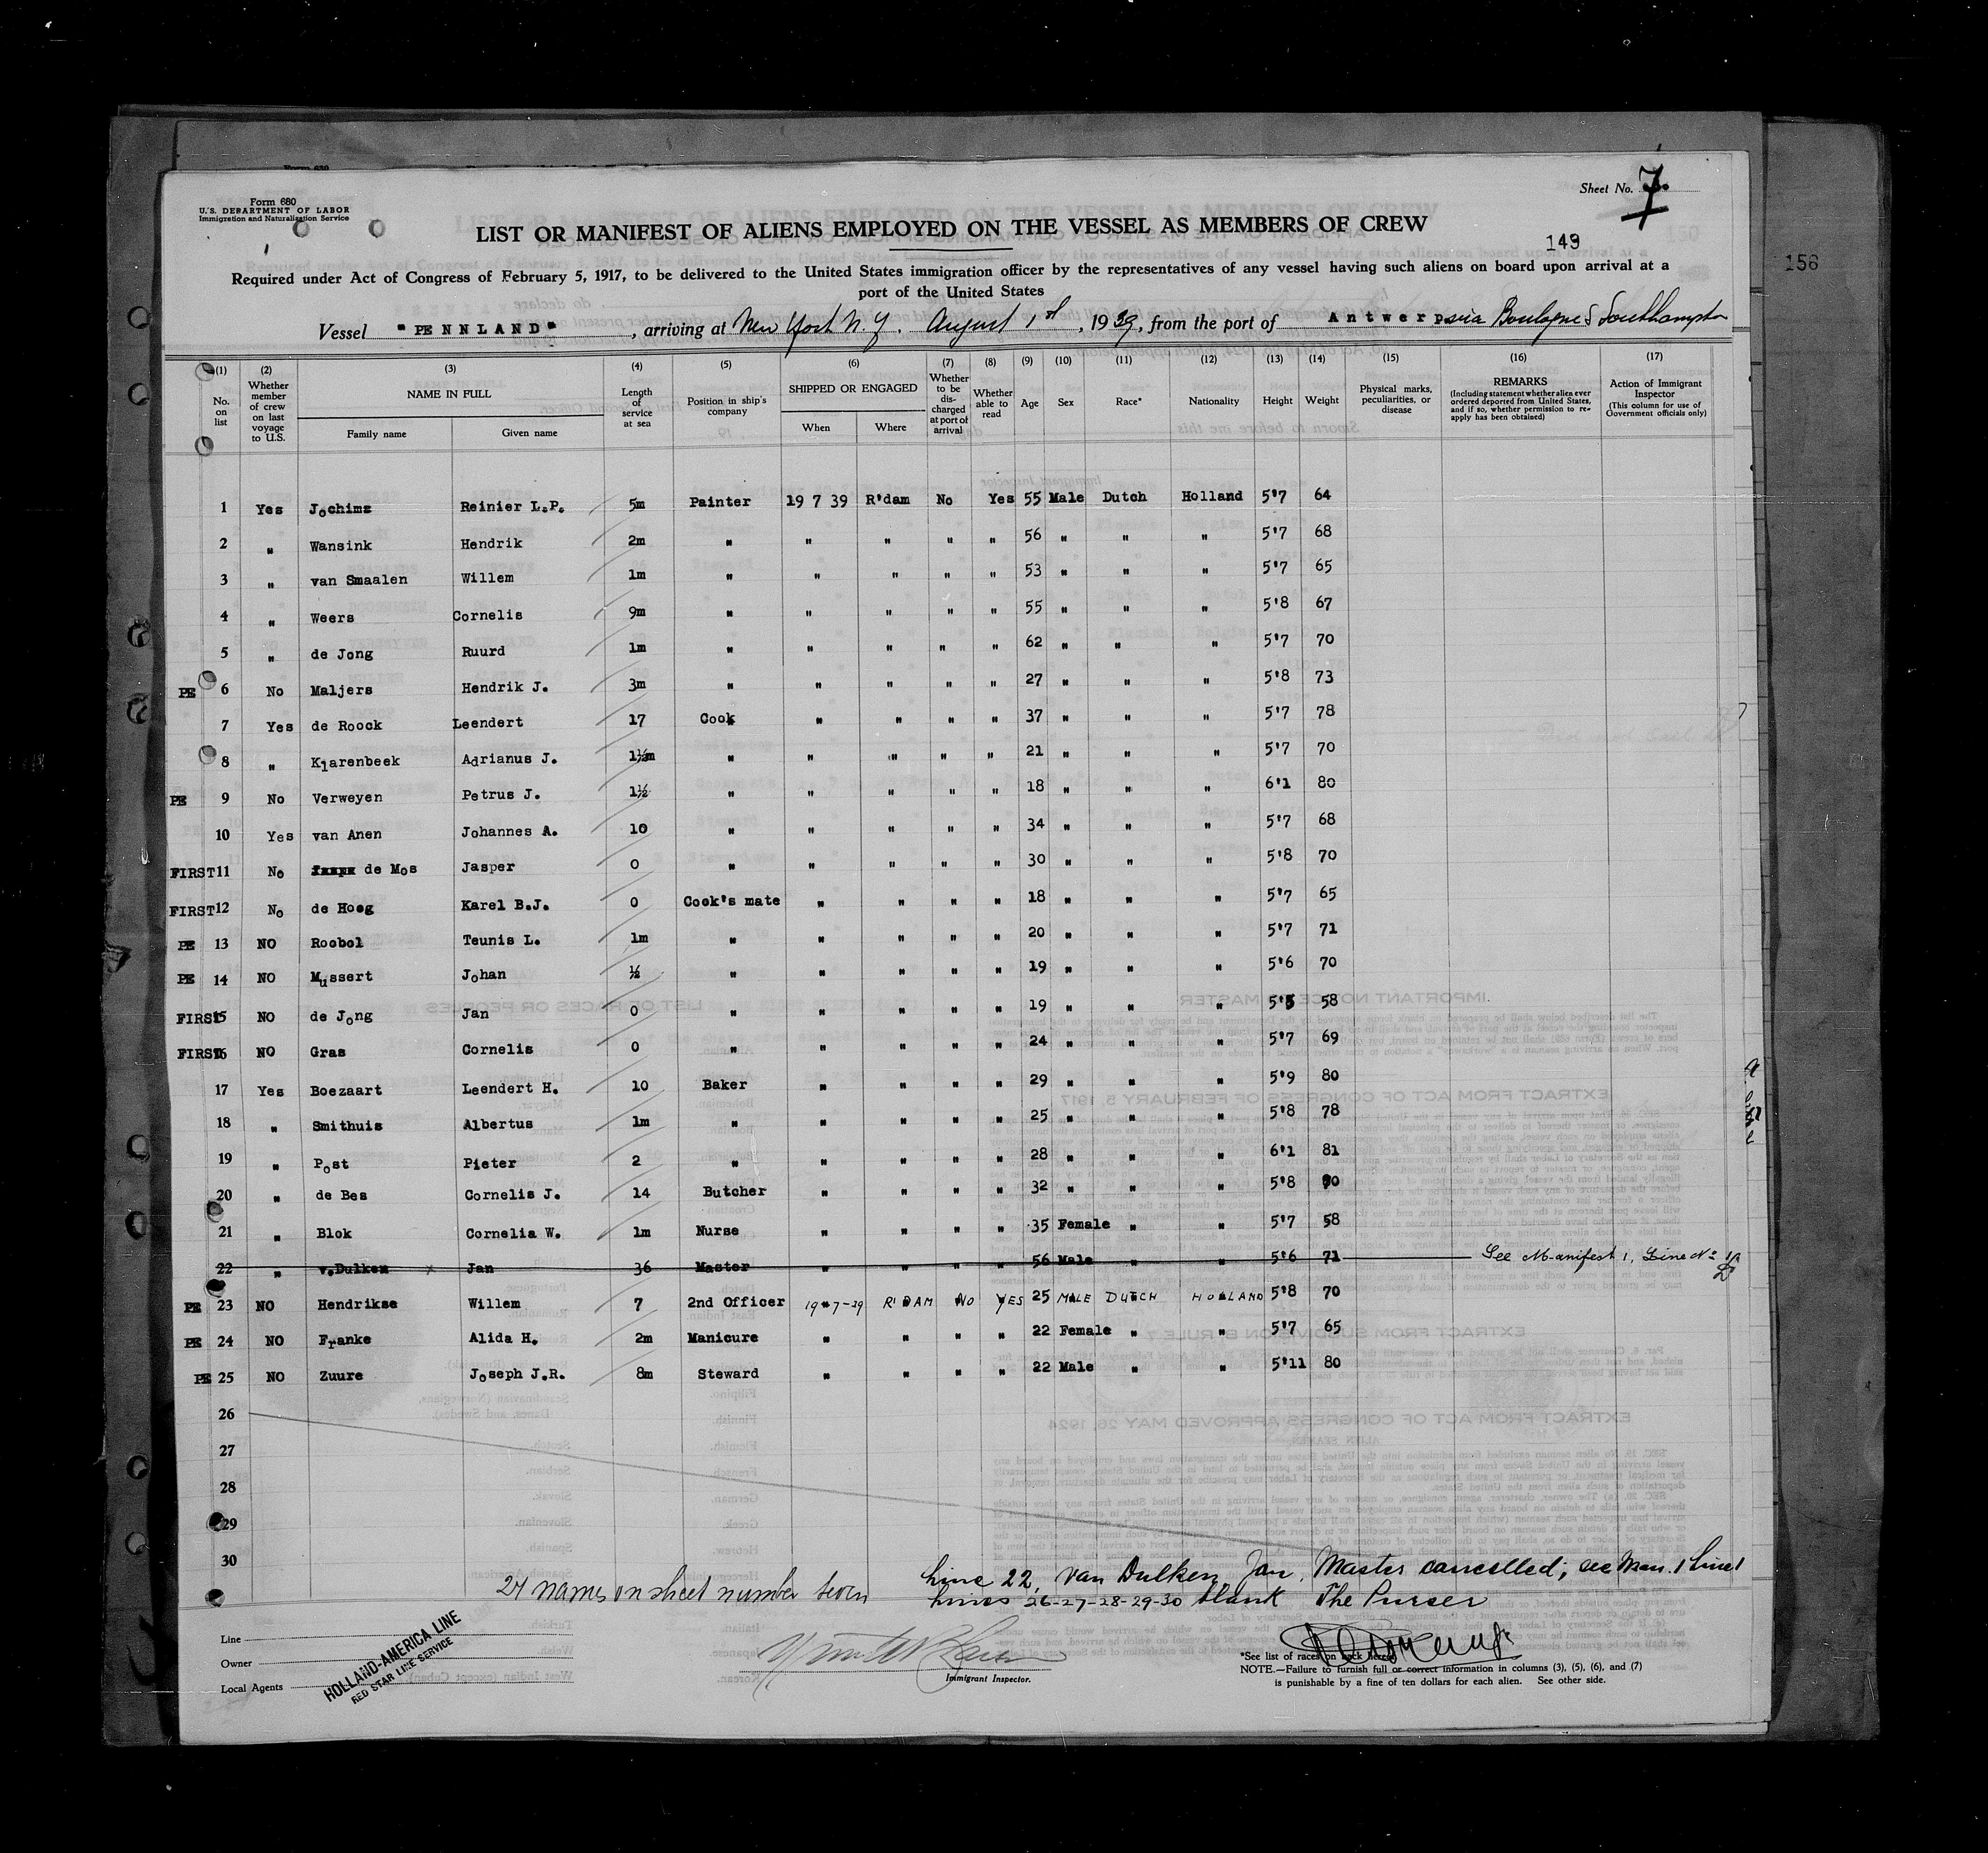 Form 680
U. S. DEPARTMENT OF LABOR
Immigration and Naturalization Service
Sheet No. 7
LIST OR MANIFEST OF ALIENS EMPLOYED ON THE VESSEL AS MEMBERS OF CREW
149
156
Required under Act of Congress of February 5, 1917, to be delivered to the United States immigration officer by the representatives of any vessel having such aliens on board upon arrival at a
port of the United States
Vessel "PENNLAND", arriving at New York N.Y. August 1st, 1939, from the port of Antwerp via Boulogne & Southampton
(1) No. on list (2) Whether member of crew on last voyage to U.S. (3) NAME IN FULL Family name Given name (4) Length of service at sea (5) Position in ship's company (6) SHIPPED OR ENGAGED When Where (7) Whether to be discharged at port of arrival (8) Whether able to read (9) Age (10) Sex (11) Race* (12) Nationality (13) Height (14) Weight (15) Physical marks, peculiarities, or disease (16) REMARKS (Including statement whether alien ever ordered deported from United States, and if so, whether permission to re-apply has been obtained) (17) Action of Immigrant Inspector (This column for use of Government officials only)
1 Yes Jochims Reinier L.P. 5m Painter 19 7 39 R'dam No Yes 55 Male Dutch Holland 5'7 64
2 " Wansink Hendrik 2m " " " " " 56 " " " 5'7 68
3 " van Smaalen Willem 1m " " " " " 53 " " " 5'7 65
4 " Weers Cornelis 9m " " " " " 55 " " " 5'8 67
5 " de Jong Ruurd 1m " " " " " 62 " " " 5'7 70
PE 6 No Maljers Hendrik J. 3m " " " " " 27 " " " 5'8 73
7 Yes de Roock Leendert 17 Cook " " " " 37 " " " 5'7 78
8 " Klarenbeek Adrianus J. 1½m " " " " " 21 " " " 5'7 70
PE 9 No Verweyen Petrus J. 1½ " " " " " 18 " " " 6'1 80
10 Yes van Anen Johannes A. 10 " " " " " 34 " " " 5'7 68
FIRST 11 No de Mos Jasper 0 " " " " " 30 " " " 5'8 70
FIRST 12 No de Hoog Karel B.J. 0 Cook's mate " " " " 18 " " " 5'7 65
PE 13 NO Roobol Teunis L. 1m " " " " " 20 " " " 5'7 71
PE 14 NO Mussert Johan ½ " " " " " 19 " " " 5'6 70
FIRST 15 NO de Jong Jan 0 " " " " " 19 " " " 5'5 58
FIRST 16 NO Gras Cornelis 0 " " " " " 24 " " " 5'7 69
17 Yes Boezaart Leendert H. 10 Baker " " " " 29 " " " 5'9 80
18 " Smithuis Albertus 1m " " " " " 25 " " " 5'8 78
19 " Post Pieter 2 " " " " " 28 " " " 6'1 81
20 " de Bes Cornelis J. 14 Butcher " " " " 32 " " " 5'8 90
21 " Blok Cornelia W. 1m Nurse " " " " 35 Female " " 5'7 58
22 " v.Dulken Jan 36 Master " " " " 56 Male " " 5'6 71 See Manifest 1, Line No 1
PE 23 NO Hendrikse Willem 7 2nd Officer 19-7-39 R'DAM NO YES 25 MALE DUTCH HOLLAND 5'8 70
PE 24 NO Franke Alida H. 2m Manicure " " " " 22 Female " " 5'7 65
PE 25 NO Zuure Joseph J.R. 8m Steward " " " " 22 Male " " 5'11 80
26
27
28
29
30
24 names on sheet number seven
Line 22, van Dulken Jan, Master cancelled; see Man. 1 Line 1
Lines 26-27-28-29-30 blank The Purser
Line
Owner
Local Agents
HOLLAND-AMERICA LINE
RED STAR LINE SERVICE
Immigrant Inspector.
*See list of races on back hereof
NOTE.—Failure to furnish full or correct information in columns (3), (5), (6), and (7)
is punishable by a fine of ten dollars for each alien. See other side.